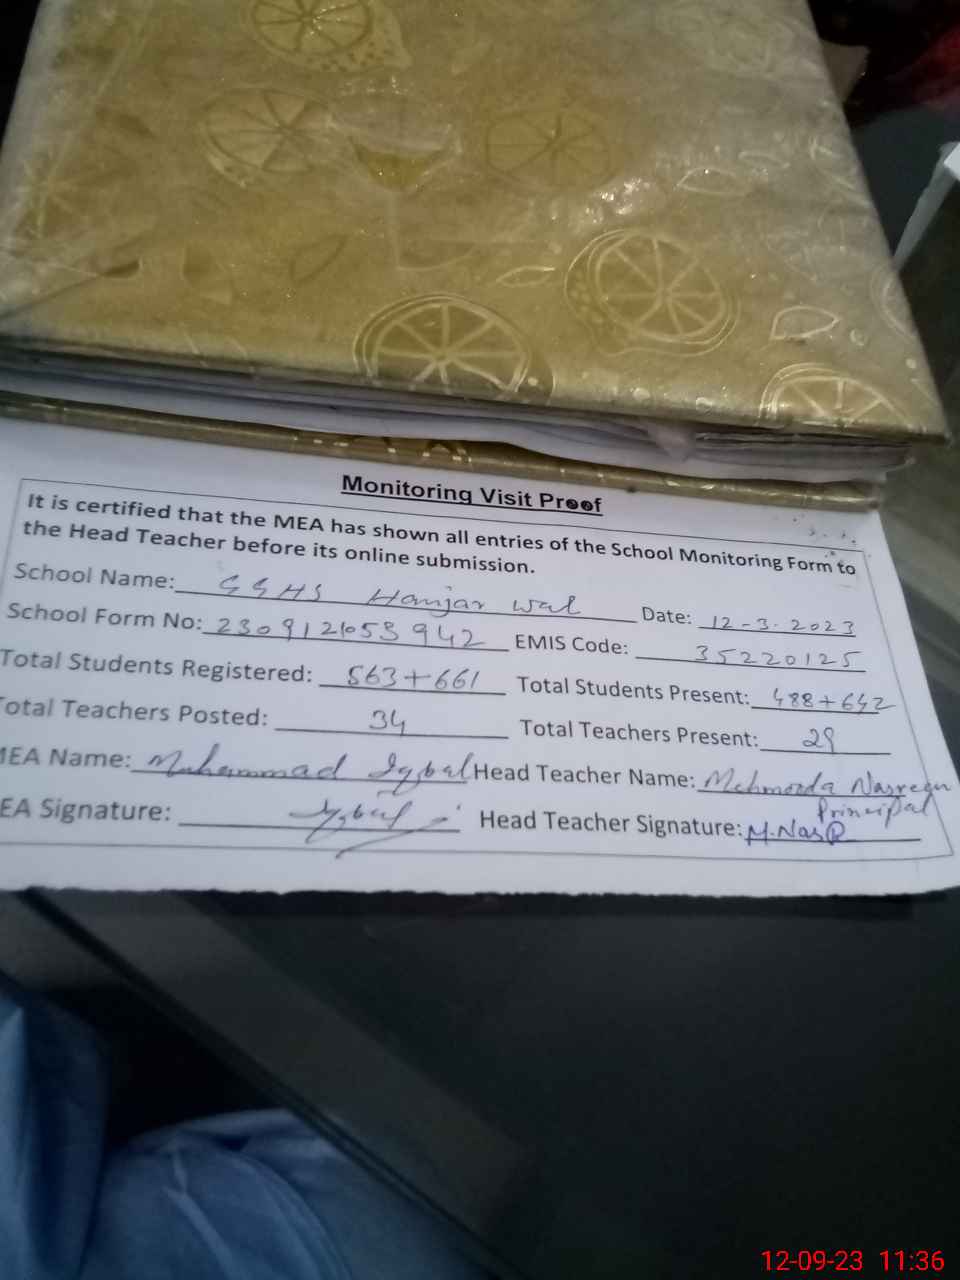 Monitoring Visit Proof
It is certified that the MEA has shown all entries of the School Monitoring Form to
the Head Teacher before its online submission.
School Name: GGHS Hanjar wal Date: 12-3-2023
School Form No: 2309121053942 EMIS Code: 35220125
Total Students Registered: 563+661 Total Students Present: 488+642
Total Teachers Posted: 34 Total Teachers Present: 29
MEA Name: Muhammad Iqbal Head Teacher Name: Mehmooda Nasreen
Principal
EA Signature: Iqbal Head Teacher Signature: M.Nas
12-09-23 11:36